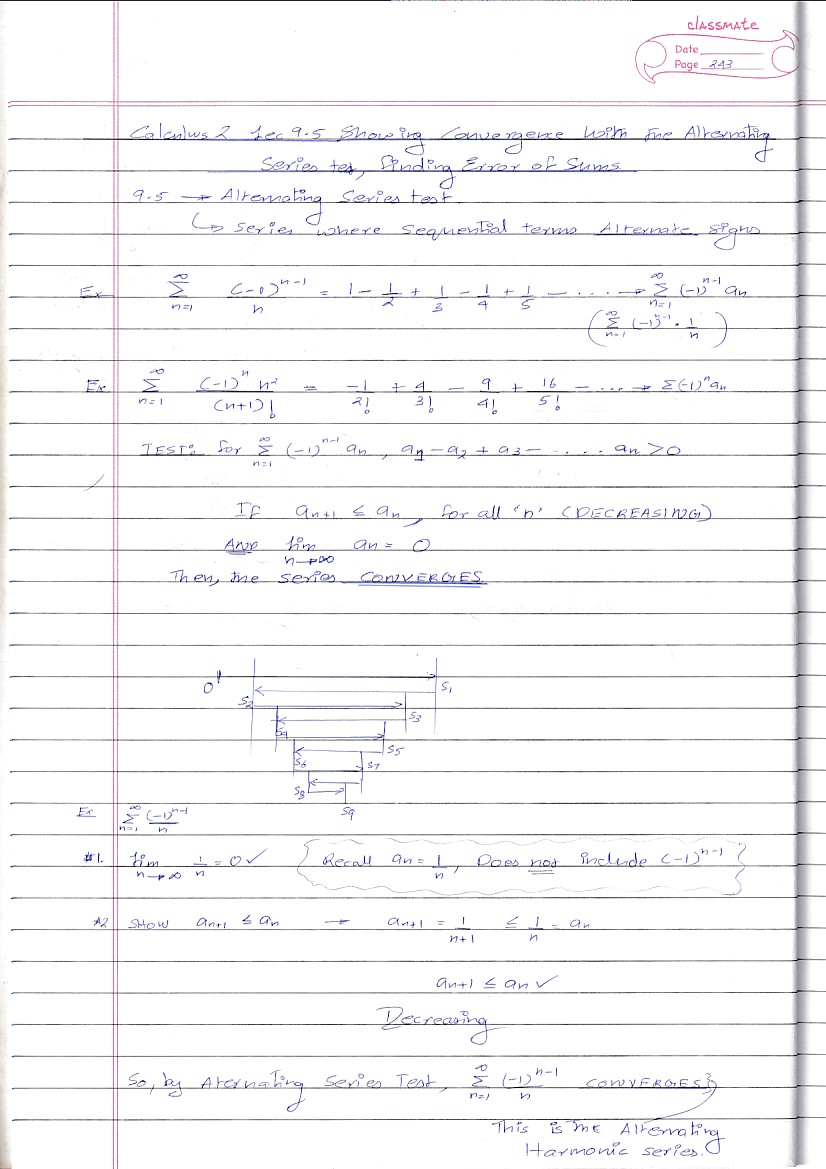 classmate
Date
Page 243
Calculus 2 Lec 9.5 Showing Convergence With The Alternating
Series tes, Finding Error of Sums
9.5 → Alternating Series test
↳ Series where sequential terms Alternate signs
Ex ∞∑n=1 (-1)^(n-1)/n = 1 - 1/2 + 1/3 - 1/4 + 1/5 - .... → ∞∑n=1 (-1)^(n-1) an
(∞∑n=1 (-1)^(n-1) · 1/n)
Ex. ∞∑n=1 (-1)^n n²/(n+1)! = -1/2! + 4/3! - 9/4! + 16/5! - .... → Σ(-1)^n an
TEST: for ∞∑n=1 (-1)^(n-1) an, a1 - a2 + a3 - ..... an > 0
If an+1 ≤ an, for all 'n' (DECREASING)
AND lim n→∞ an = 0
Then, the series CONVERGES
0 S1
S2 S3
S4 S5
S6 S7
S8 S9
Ex ∞∑n=1 (-1)^(n-1)/n
#1. lim n→∞ 1/n = 0 ✓ {Recall an = 1/n, Does not include (-1)^(n-1)}
#2 SHOW an+1 ≤ an → an+1 = 1/(n+1) ≤ 1/n = an
an+1 ≤ an ✓
Decreasing
So, by Aternating Series Test, ∞∑n=1 (-1)^(n-1)/n CONVERGES}
This is the Alternating
Harmonic series.